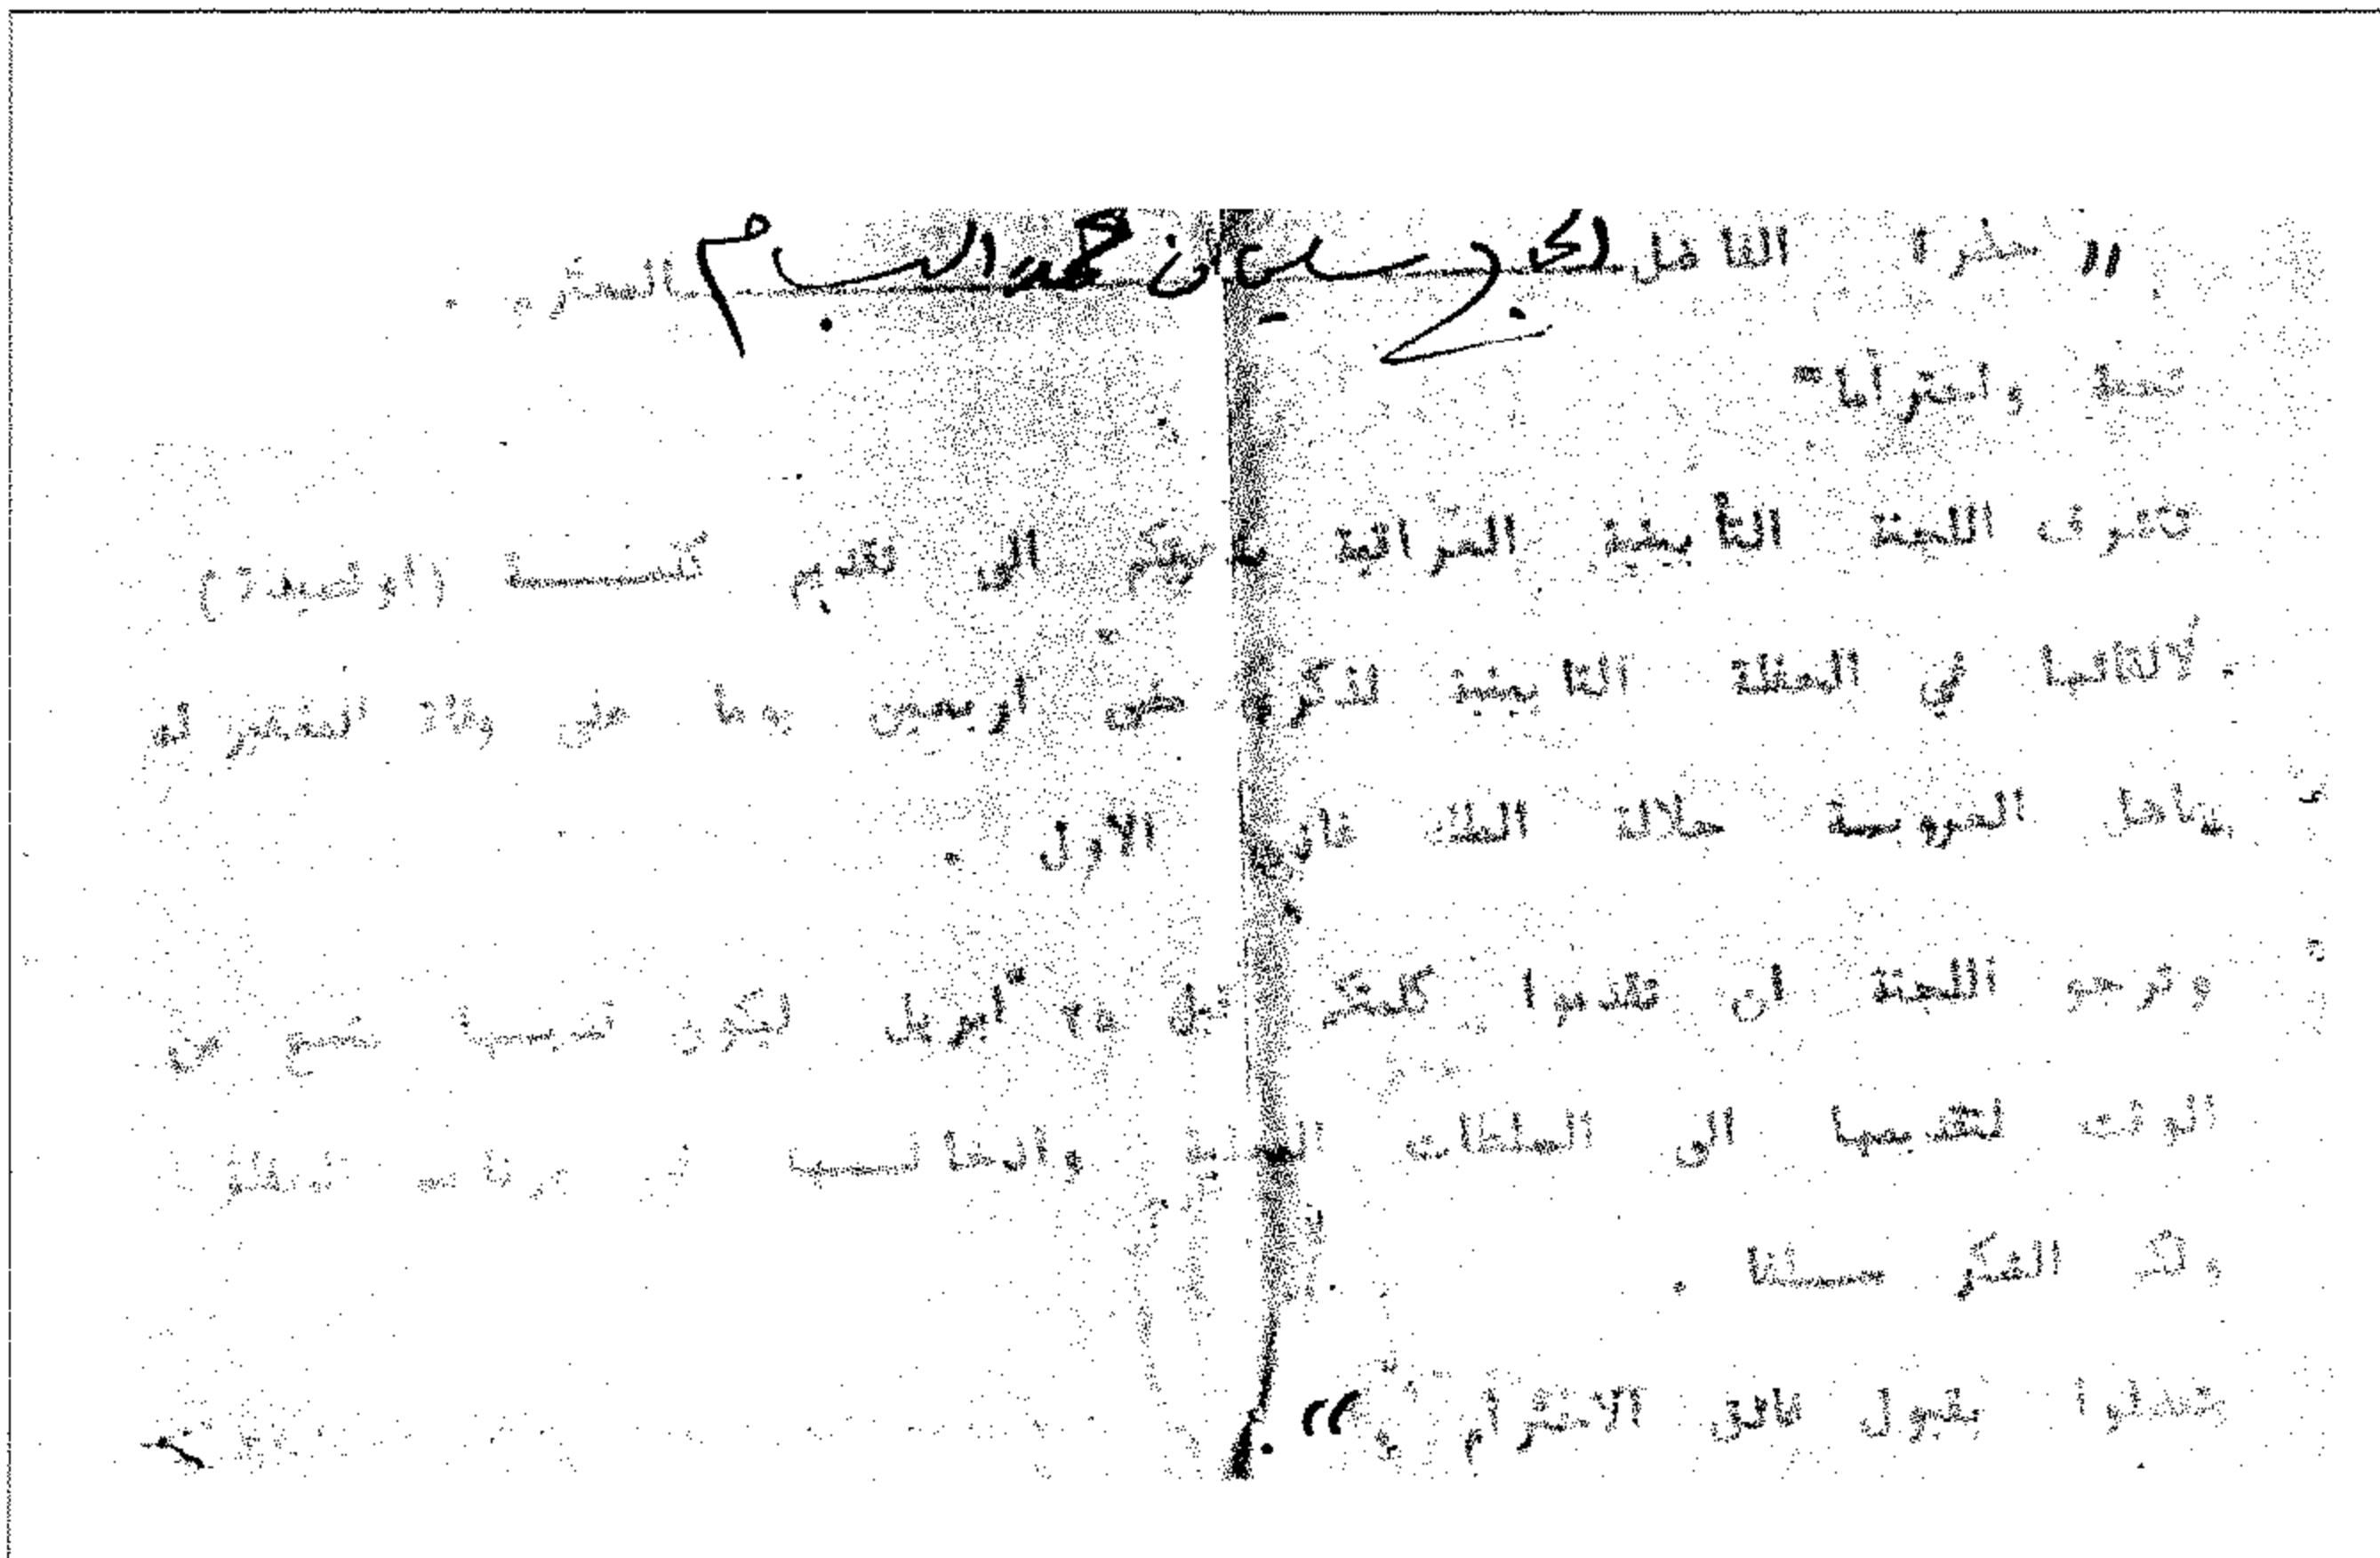 " حضرة الفاضل الحاج سليمان محمد البسام المحترم .
تحية واحتراما"
تتشرف اللجنة التأبينية العراقية بدعوتكم الى تقديم كلمـــة (او قصيدة)
لالقائها في الحفلة التأبينية لذكرى مضي اربعين يوما على وفاة المغفور له
عاهل العروبـة جلالة الملك غازي الاول .
وترجو اللجنة ان تقدموا كلمتكم قبل ٢٥ ابريل ليكون لديـها متسع من
الوقت لتقديمها الى السلطات المحلية وادخالـــها في برنامج الحفلة .
ولكم الشكر ســلفا .
وتفضلوا بقبول فائق الاحترام ".